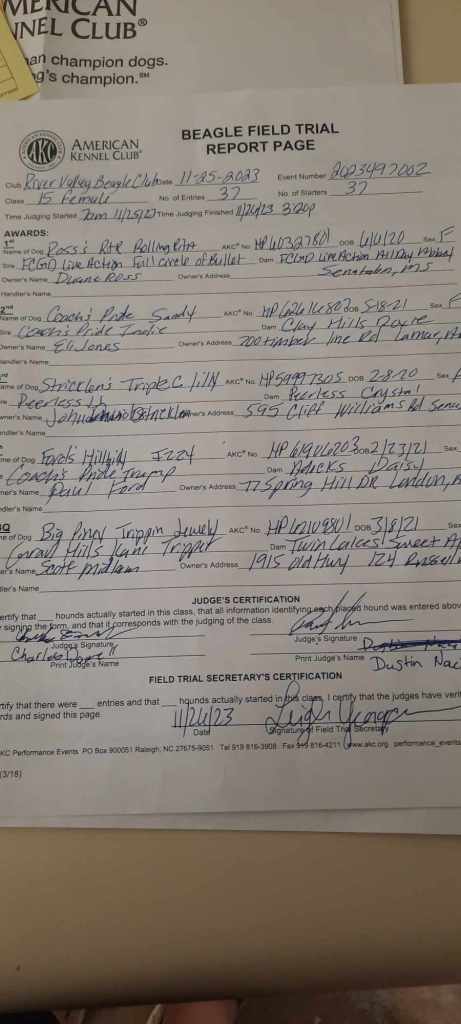 MERICAN
NNEL CLUB®
an champion dogs.
g's champion.℠
BEAGLE FIELD TRIAL
REPORT PAGE
AMERICAN
KENNEL CLUB®
Club River Valley Beagle Club Date 11-25-2023 Event Number 2023497002
Class 15 Female No. of Entries 37 No. of Starters 37
Time Judging Started 7am 11/25/23 Time Judging Finished 11/26/23 3:20p
AWARDS:
1st
Name of Dog Ross's Rtr Rolling AKC® No HP60327801 DOB 6/6/20 Sex F
Sire FCGD Live Action Full Circle of Bullet Dam FCGD Live Action All Day
Owner's Name Duane Ross Owner's Address Senatobia, MS
Handler's Name
2nd
Name of Dog Coach's Pride Sandy AKC® No. DOB 5-18-21 Sex F
Sire Coach's Pride Dam Clay Mills Roxie
Owner's Name Eli Jones Owner's Address 200 timber line Rd Lamar,
Handler's Name
rd
ame of Dog Stricklen's Triple C Lilly AKC® No. HP59997305 DOB 2-8-20 Sex
Peerless Dam Peerless Crystal
wner's Name John Owner's Address 595 Cliff Williams Rd
ndler's Name
me of Dog Ford's Hillbilly AKC® No. HP61906203 DOB 2/23/21 Sex
Coach's Pride Trump Dam Adcks Daisy
ner's Name Paul Ford Owner's Address 77 Spring Hill DR London,
dler's Name
BQ
e of Dog Big Piney Trippin Jewely AKC® No. HP62109801 DOB 3/8/21 Sex
Mills Kane Tripper Dam Twin Lakes Sweet
er's Name Scott Midlam Owner's Address 1915 old Hwy 124
er's Name
JUDGE'S CERTIFICATION
certify that ___ hounds actually started in this class, that all information identifying each placed hound was entered above
signing the form, and that it corresponds with the judging of the class.
Judge's Signature Judge's Signature
Charles
Print Judge's Name Print Judge's Name Dustin
FIELD TRIAL SECRETARY'S CERTIFICATION
rtify that there were ___ entries and that ___ hounds actually started in this class, I certify that the judges have veri
rds and signed this page.
11/26/23 Leigh
Date Signature of Field Trial Secretary
KC Performance Events PO Box 900051 Raleigh, NC 27675-9051 Tel 919 816-3908 Fax 919 816-4211 www.akc.org performance_events
(3/18)